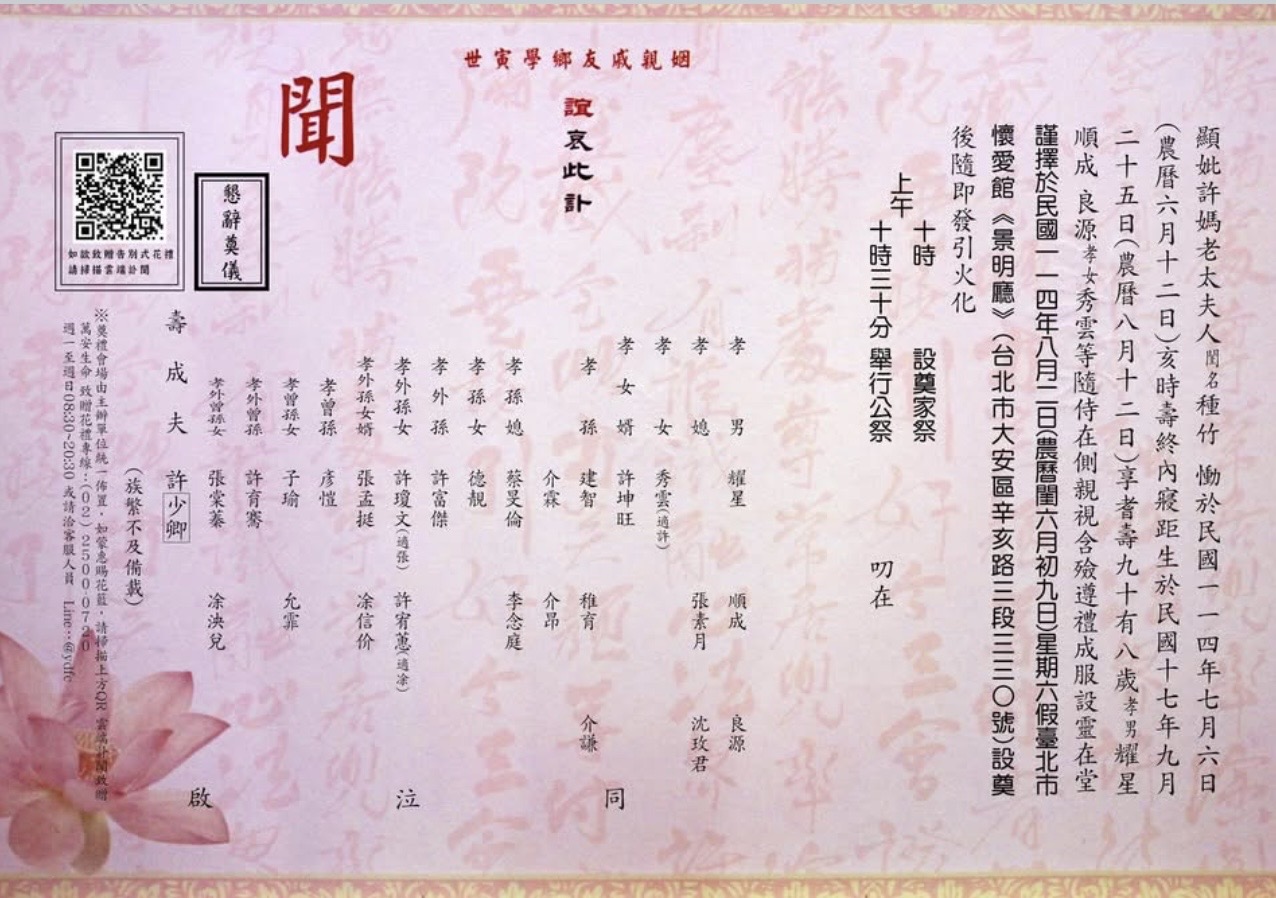 顯妣許媽老太夫人閨名種竹 慟於民國一一四年七月六日
(農曆六月十二日)亥時壽終內寢距生於民國十七年九月
二十五日(農曆八月十二日)享耆壽九十有八歲孝男耀星
順成 良源孝女秀雲等隨侍在側親視含殮遵禮成服設靈在堂
謹擇於民國一一四年八月二日(農曆閏六月初九日)星期六假臺北市
懷愛館《景明廳》(台北市大安區辛亥路三段三三〇號)設奠
後隨即發引火化
上午 十時 設奠家祭
十時三十分 舉行公祭
叨在
姻親戚友鄉學寅世
誼哀此訃
聞
孝男 耀星 順成 良源
孝媳 張素月 沈玫君
孝女 秀雲(適許)
孝女婿 許坤旺
孝孫 建智 稚育 介謙
介霖 介昂
孝孫媳 蔡旻倫 李念庭
孝孫女 德靚
孝外孫 許富傑
孝外孫女 許瓊文(適張) 許宥蕙(適凃)
孝外孫女婿 張孟挺 凃信价
孝曾孫 彥愷
孝曾孫女 子瑜 允霏
孝外曾孫 許育騫
孝外曾孫女 張棠蓁 凃泱兒
壽成夫 許少卿
同 泣 啟
(族繁不及備載)
懇辭奠儀
如欲致贈告別式花禮
請掃描雲端訃聞
※奠禮會場由主辦單位統一佈置，如蒙惠賜花籃，請掃描上方QR 雲端訃聞致贈
萬安生命 致贈花禮專線：(02)2500-0720
週一至週日08:30~20:30 或請洽客服人員 Line：@ydfc